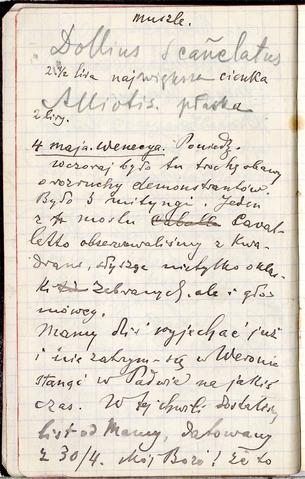 muszle.
Dollius Scañelatus
2 1/2 lira największa cienka
Alliotis. płaska
2 liry.
4 maja. Wenecya. Poniedz.
wczoraj było tu trochę obawy
o rozruchy demonstrantów.
Było 3 mityngi. Jeden
z mostu Caballo Caval-
letto obserwowaliśmy z Kwa-
drans, słysząc nietylko okla-
ki zebranych, ale i głos
mówcy.
Mamy dziś wyjechać już
i nie zatrzym-się w Weronie
stanąć w Padwie na jakiś
czas. W tej chwili dostałem
list od Mamy, datowany
z 30/4. Mój Boże! Że to